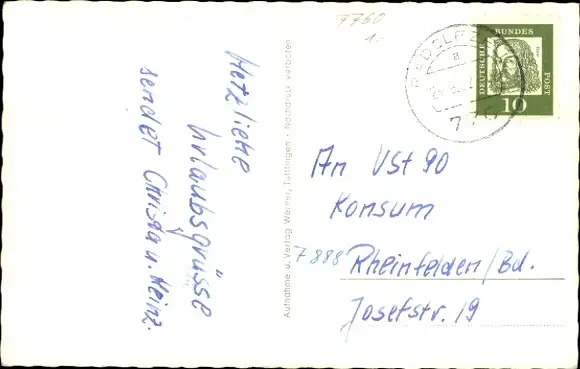 Herzliche
Urlaubsgrüsse
sendet Christa u. Heinz.
Aufnahme u. Verlag Werner, Tuttlingen · Nachdruck verboten
7760
1.-
a
DEUTSCHE
BUNDES
POST
10
An VSt 90
Konsum
7888 Rheinfelden/Bd.
Josefstr. 19